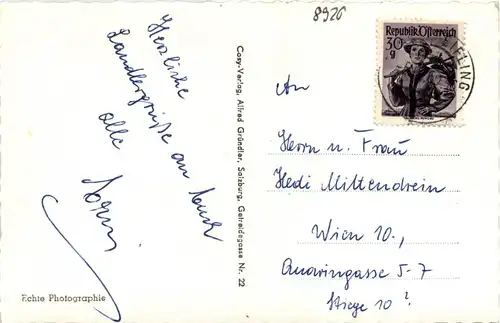 8926
Herzliche
Landlergrüße an Euch
alle
Echte Photographie
Cosy-Verlag, Alfred Gründler, Salzburg, Getreidegasse Nr. 22
Republik Österreich
30
g
ELING
An
Herrn u. Frau
Hedi Mittendrein
Wien 10.,
Quaringasse 5-7
Stiege 10?